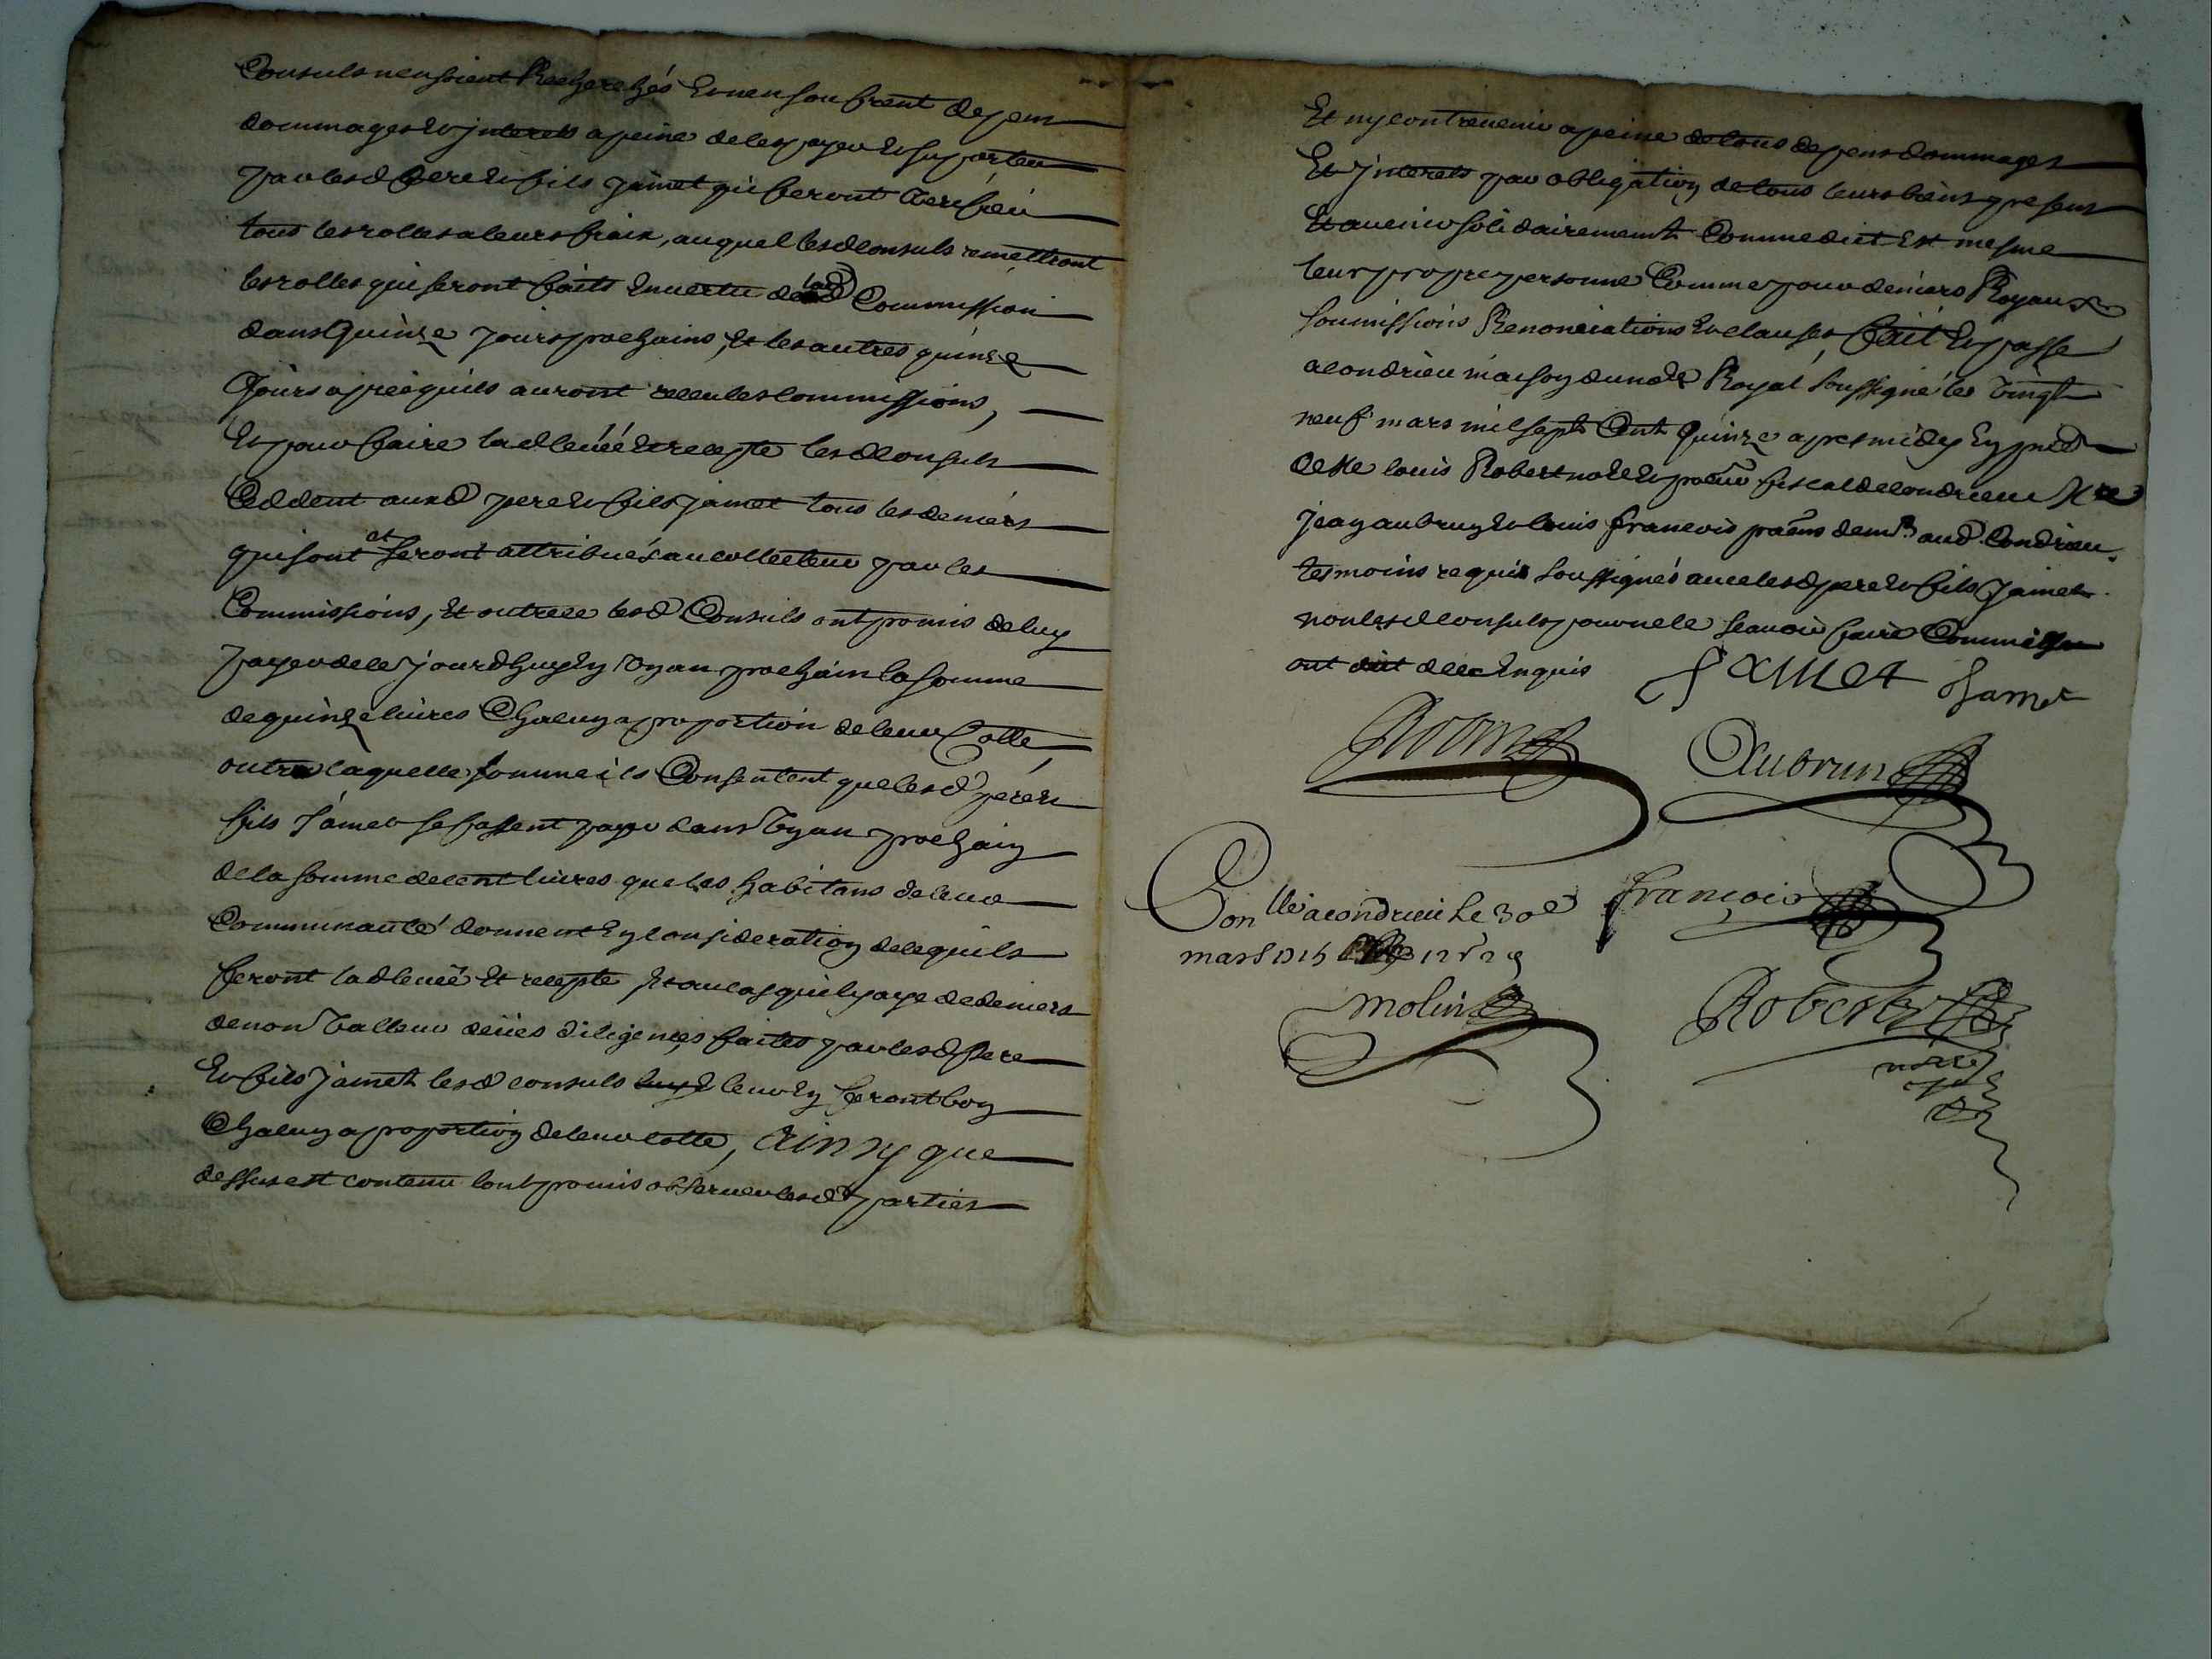 Consuls nen soient Recherchés Et nen soufrent depens
dommages Et jnterets a peine de les payer Et suporter
par lesd pere Et fils jamet qui feront veriffier
tous les rolles a leurs fraix, auquel lesd consuls remettront
les rolles qui seront faits En vertu de lad Commission
dans Quinze jours prochains, Et les autres quinze
Jours apres quils auront receu les Commissions,
Et pour faire lad levéé Et recepte lesd Consuls
Ceddent ausd pere Et fils jamet tous les deniers
qui sont et seront attribués au collecteur par les
Commissions, Et outre ce lesd Consuls ont promis de luy
payer de ce jourdhuy En Vn an prochain la somme
de quinze livres Chacun a proportion de leur Cotte,
outre laquelle somme ils Consentent que lesd pere Et
fils Jamet se fassent payer dans Vn an prochain
de la somme de cent livres que les habitans de leur
Communauté donnent En consideration de ce quils
feront lad levéé Et recepte Et au cas quil y aye de deniers
de non Valleur deües diligences faites par lesd Pere
Et fils Jamet lesd consuls leur En feront bon
Chacun a proportion de leur cotte, Ainsy que
dessus est contenu lont promis observer lesd parties
Et ny contrevenir a peine de tous depens dommages
Et jnterets par obligation de tous leurs biens presens
Et avenir solidairement Comme dict Est mesme
leur propre personne Comme pour deniers Royaux
soumissions Renonciations Et clauses, fait Et passé
a condrieu maison du nore Royal soussigné le vingt
neuf mars mil sept Cent Quinze apres midy En pnce
de Me louis Robert nore Et procur fiscal de condrieu Me
jean aubrun Et louis francois praens demt aud Condrieu
tesmoins requis soussignés avec lesd pere Et fils Jamet
non lesd consuls pour ne le scavoir faire Comme
ont dict de ce Enquis
Jamet Jamet
Aubrun
Conllé a condrieu le 30e
françois
mars 1715 12 s 2 d
molin
Robert
nore